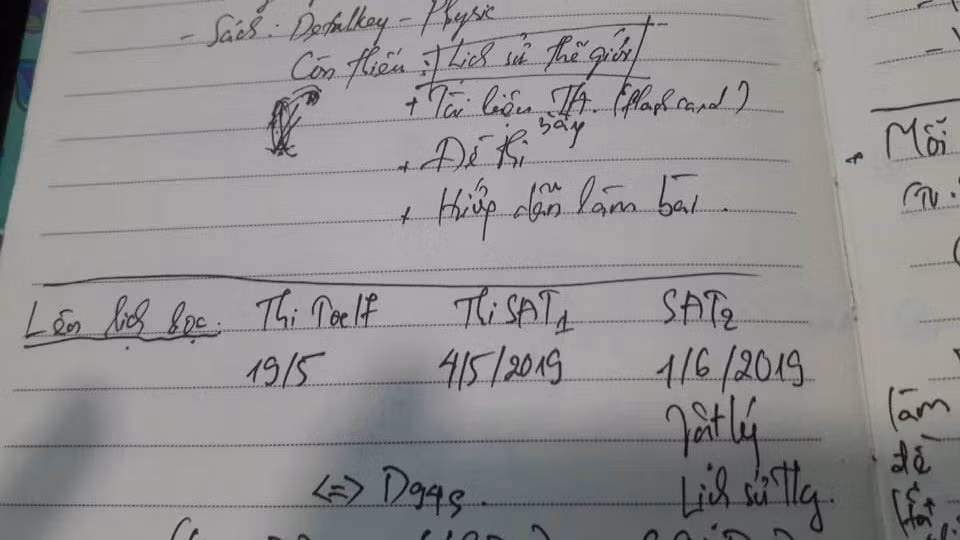 - Sách: Derfalkey - Physic
Còn thiếu: Lịch sử thế giới
+ Tài liệu TA. (flash card)
+ Đề thi
sấy
+ Hướng dẫn làm bài.
Mỗi
Lên lịch học: Thi Toelf Thi SAT1 SAT2
19/5 4/5/2019 1/6/2019
Vật lý
làm
đề
<=>
Lịch sử Tg.